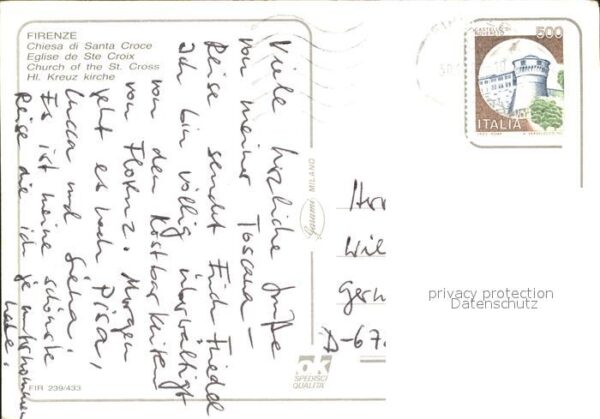 FIRENZE
Chiesa di Santa Croce
Eglise de Ste Croix
Church of the St. Cross
Hl. Kreuz kirche
Viele herzliche Grüße
von meiner Toscana-
Reise sendet Euch Friedel
Ich bin völlig überwältigt
von den Kostbarkeiten
von Florenz. Morgen
geht es nach Pisa,
Lucca und Siena.
Es ist meine schönste
Reise die ich je unternommen
habe.
CASTELLO DI
ROVERETO
500
ITALIA
MILANO
Herr
Wil
Germ
D-67
privacy protection
Datenschutz
OK
SPEDISCI
QUALITÀ
FIR 239/433